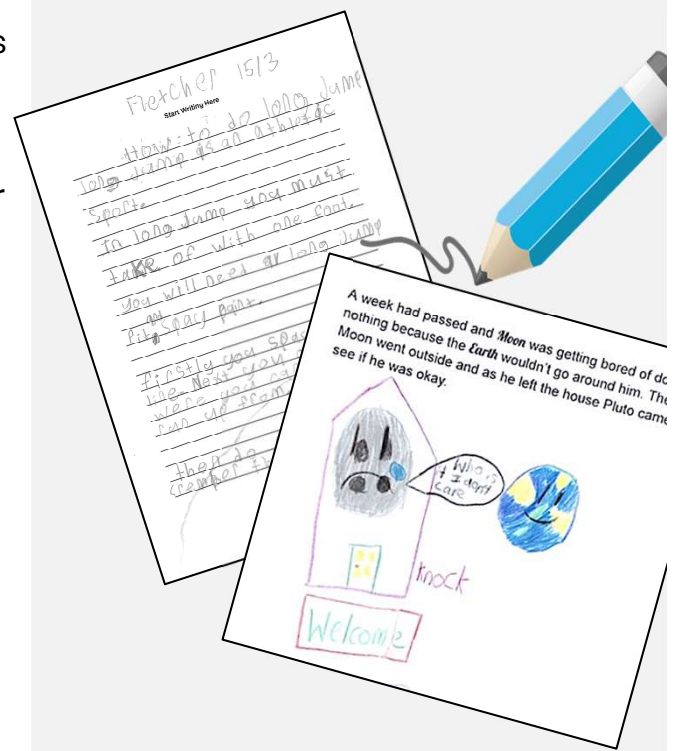 s
r
Fletcher 15/3
Start Writing Here
How to do long Jump
long Jump is an athletic
Sport.
In long Jump you must
take of with one foot.
you will need a long Jump
Pit and spray paint.
firstly you spra
line Next you
were you
run up from
then do
A week had passed and Moon was getting bored of do
nothing because the Earth wouldn't go around him. The
Moon went outside and as he left the house Pluto came
see if he was okay.
Who is
it I dont
care
knock
Welcome